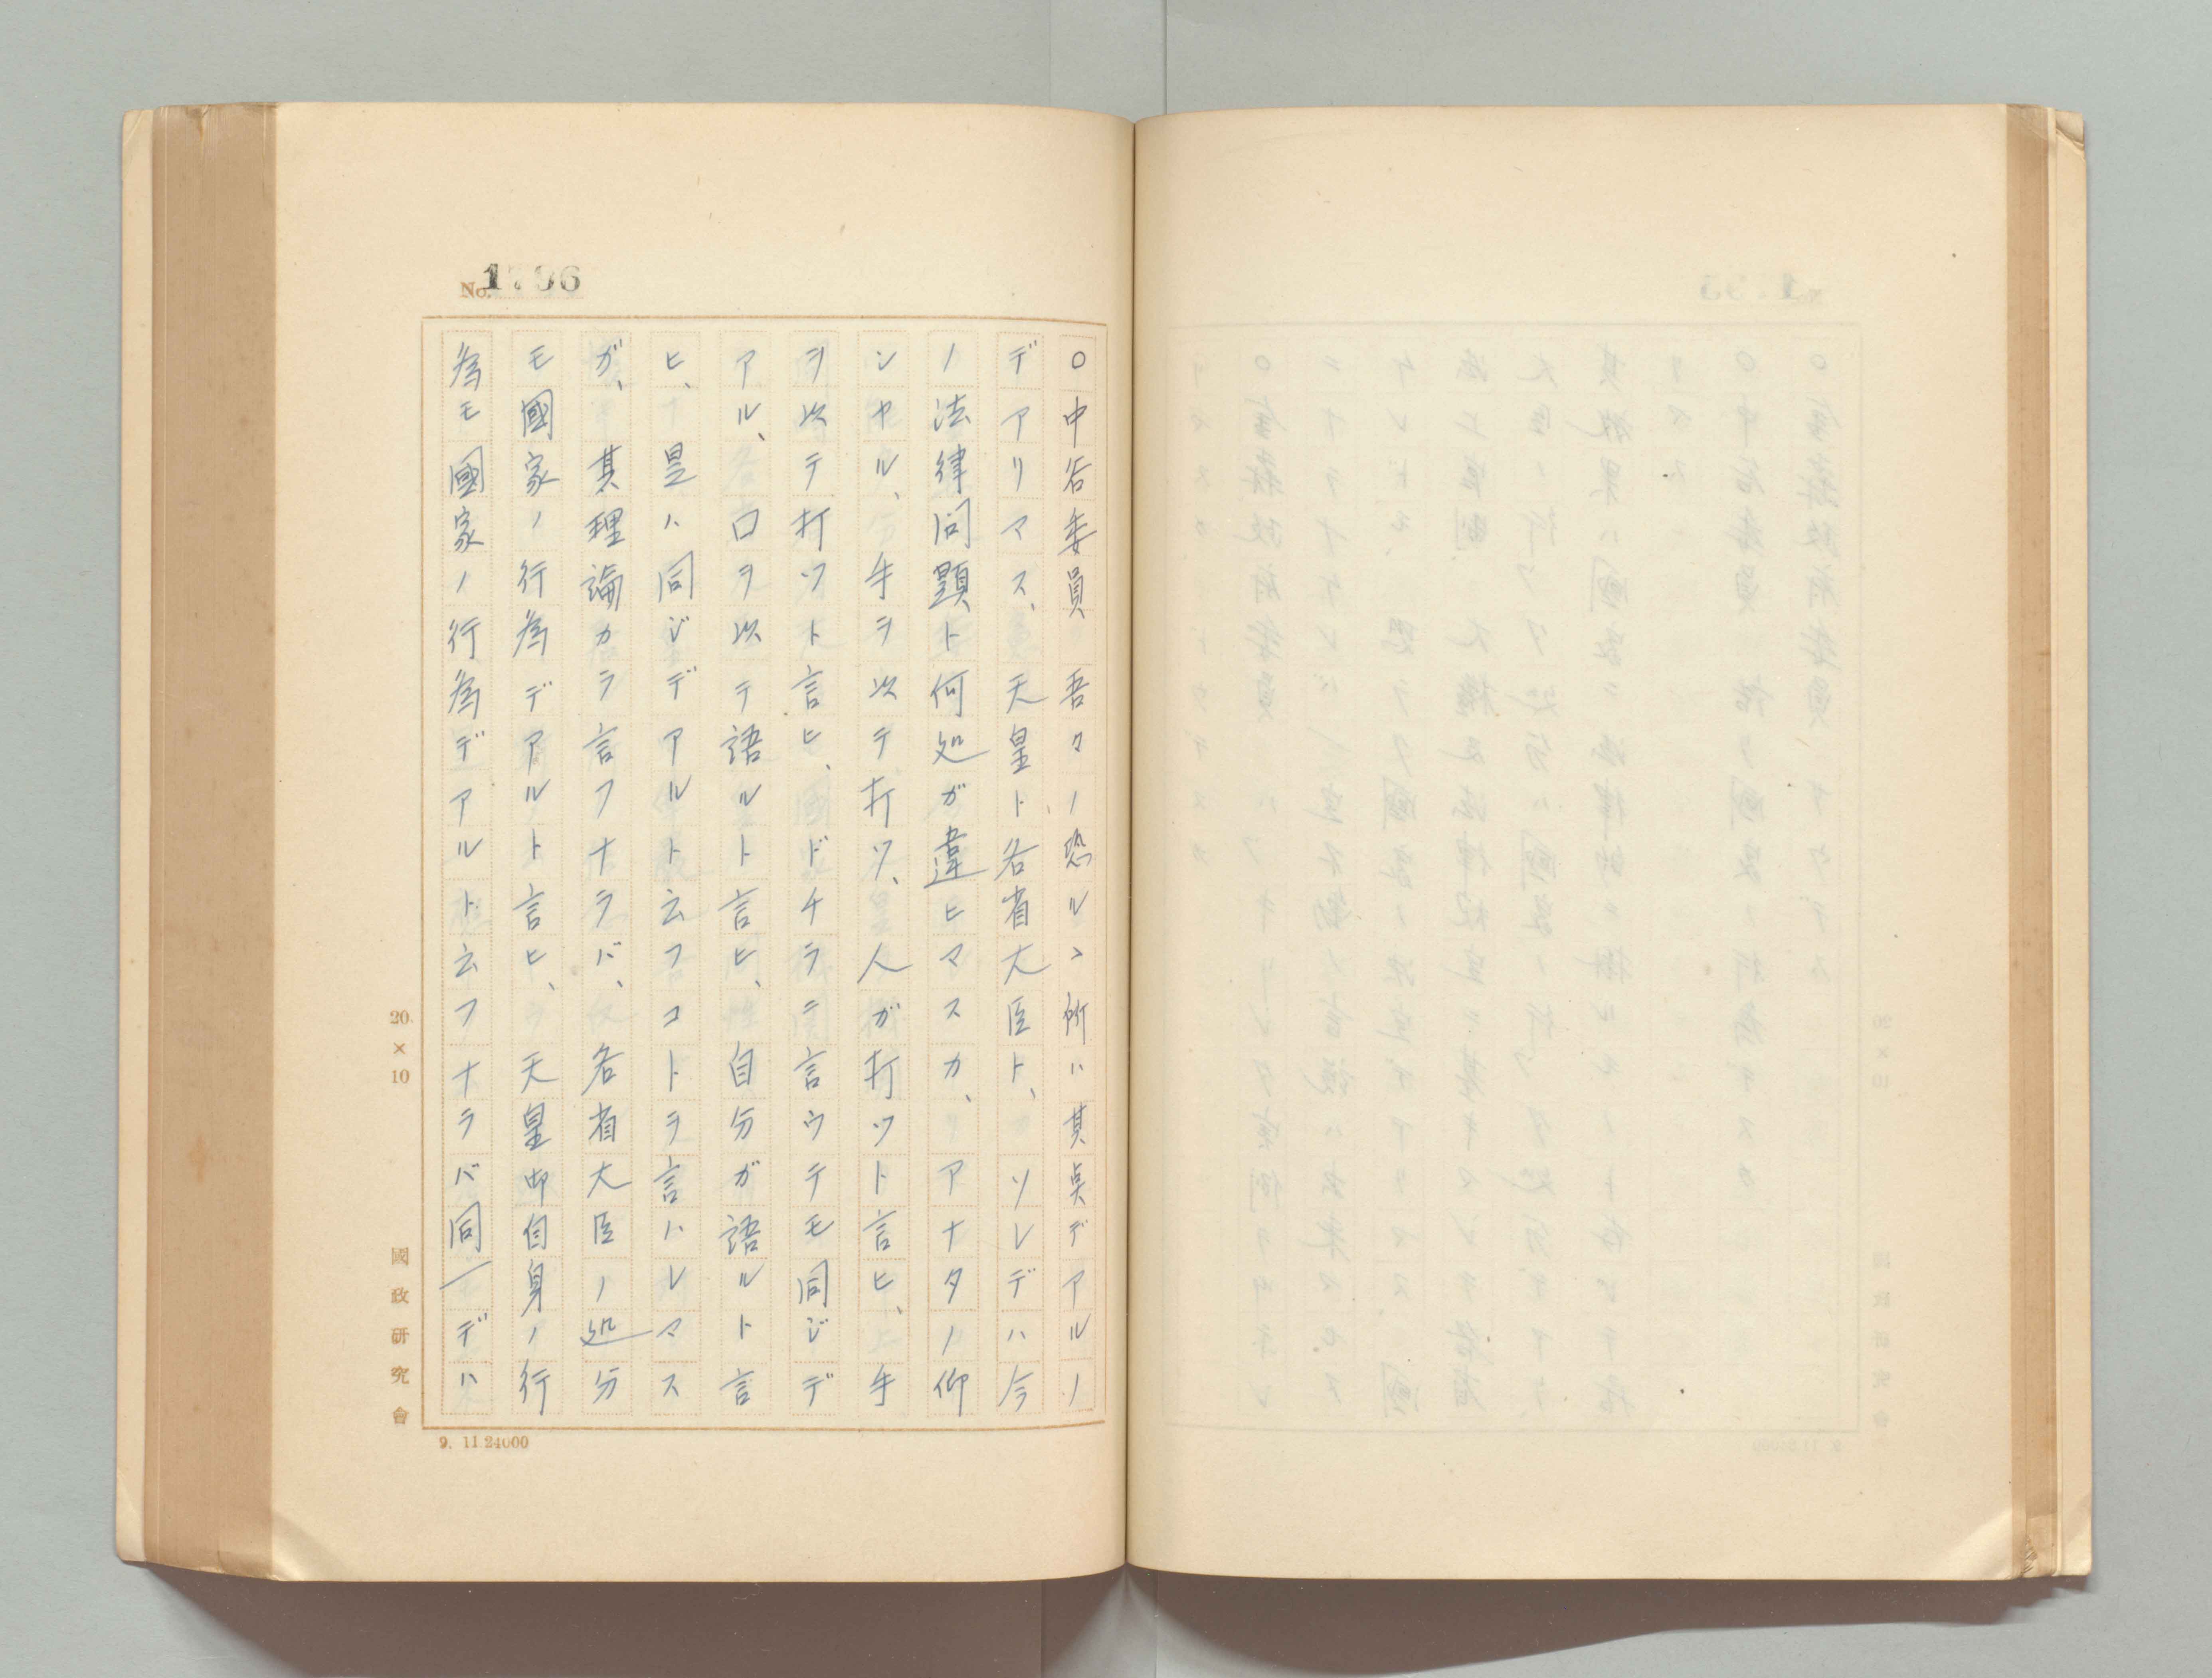 No. 1796
〇中谷委員　吾々ノ恐ルヽ所ハ其点デアルノ
デアリマス、天皇ト各省大臣ト、ソレデハ今
ノ法律問題ト何処ガ違ヒマスカ、アナタノ仰
シヤル、手ヲ以テ打ツ、人ガ打ツト言ヒ、手
ヲ以テ打ツト言ヒ、ドチラニ言ウテモ同ジデ
アル、口ヲ以テ語ルト言ヒ、自分ガ語ルト言
ヒ、是ハ同ジデアルト云フコトヲ言ハレマス
ガ、其理論カラ言フナラバ、各省大臣ノ処分
モ國家ノ行為デアルト言ヒ、天皇御自身ノ行
為モ國家ノ行為デアルト云フナラバ同一デハ
20×10
國政研究會
9. 11.24000